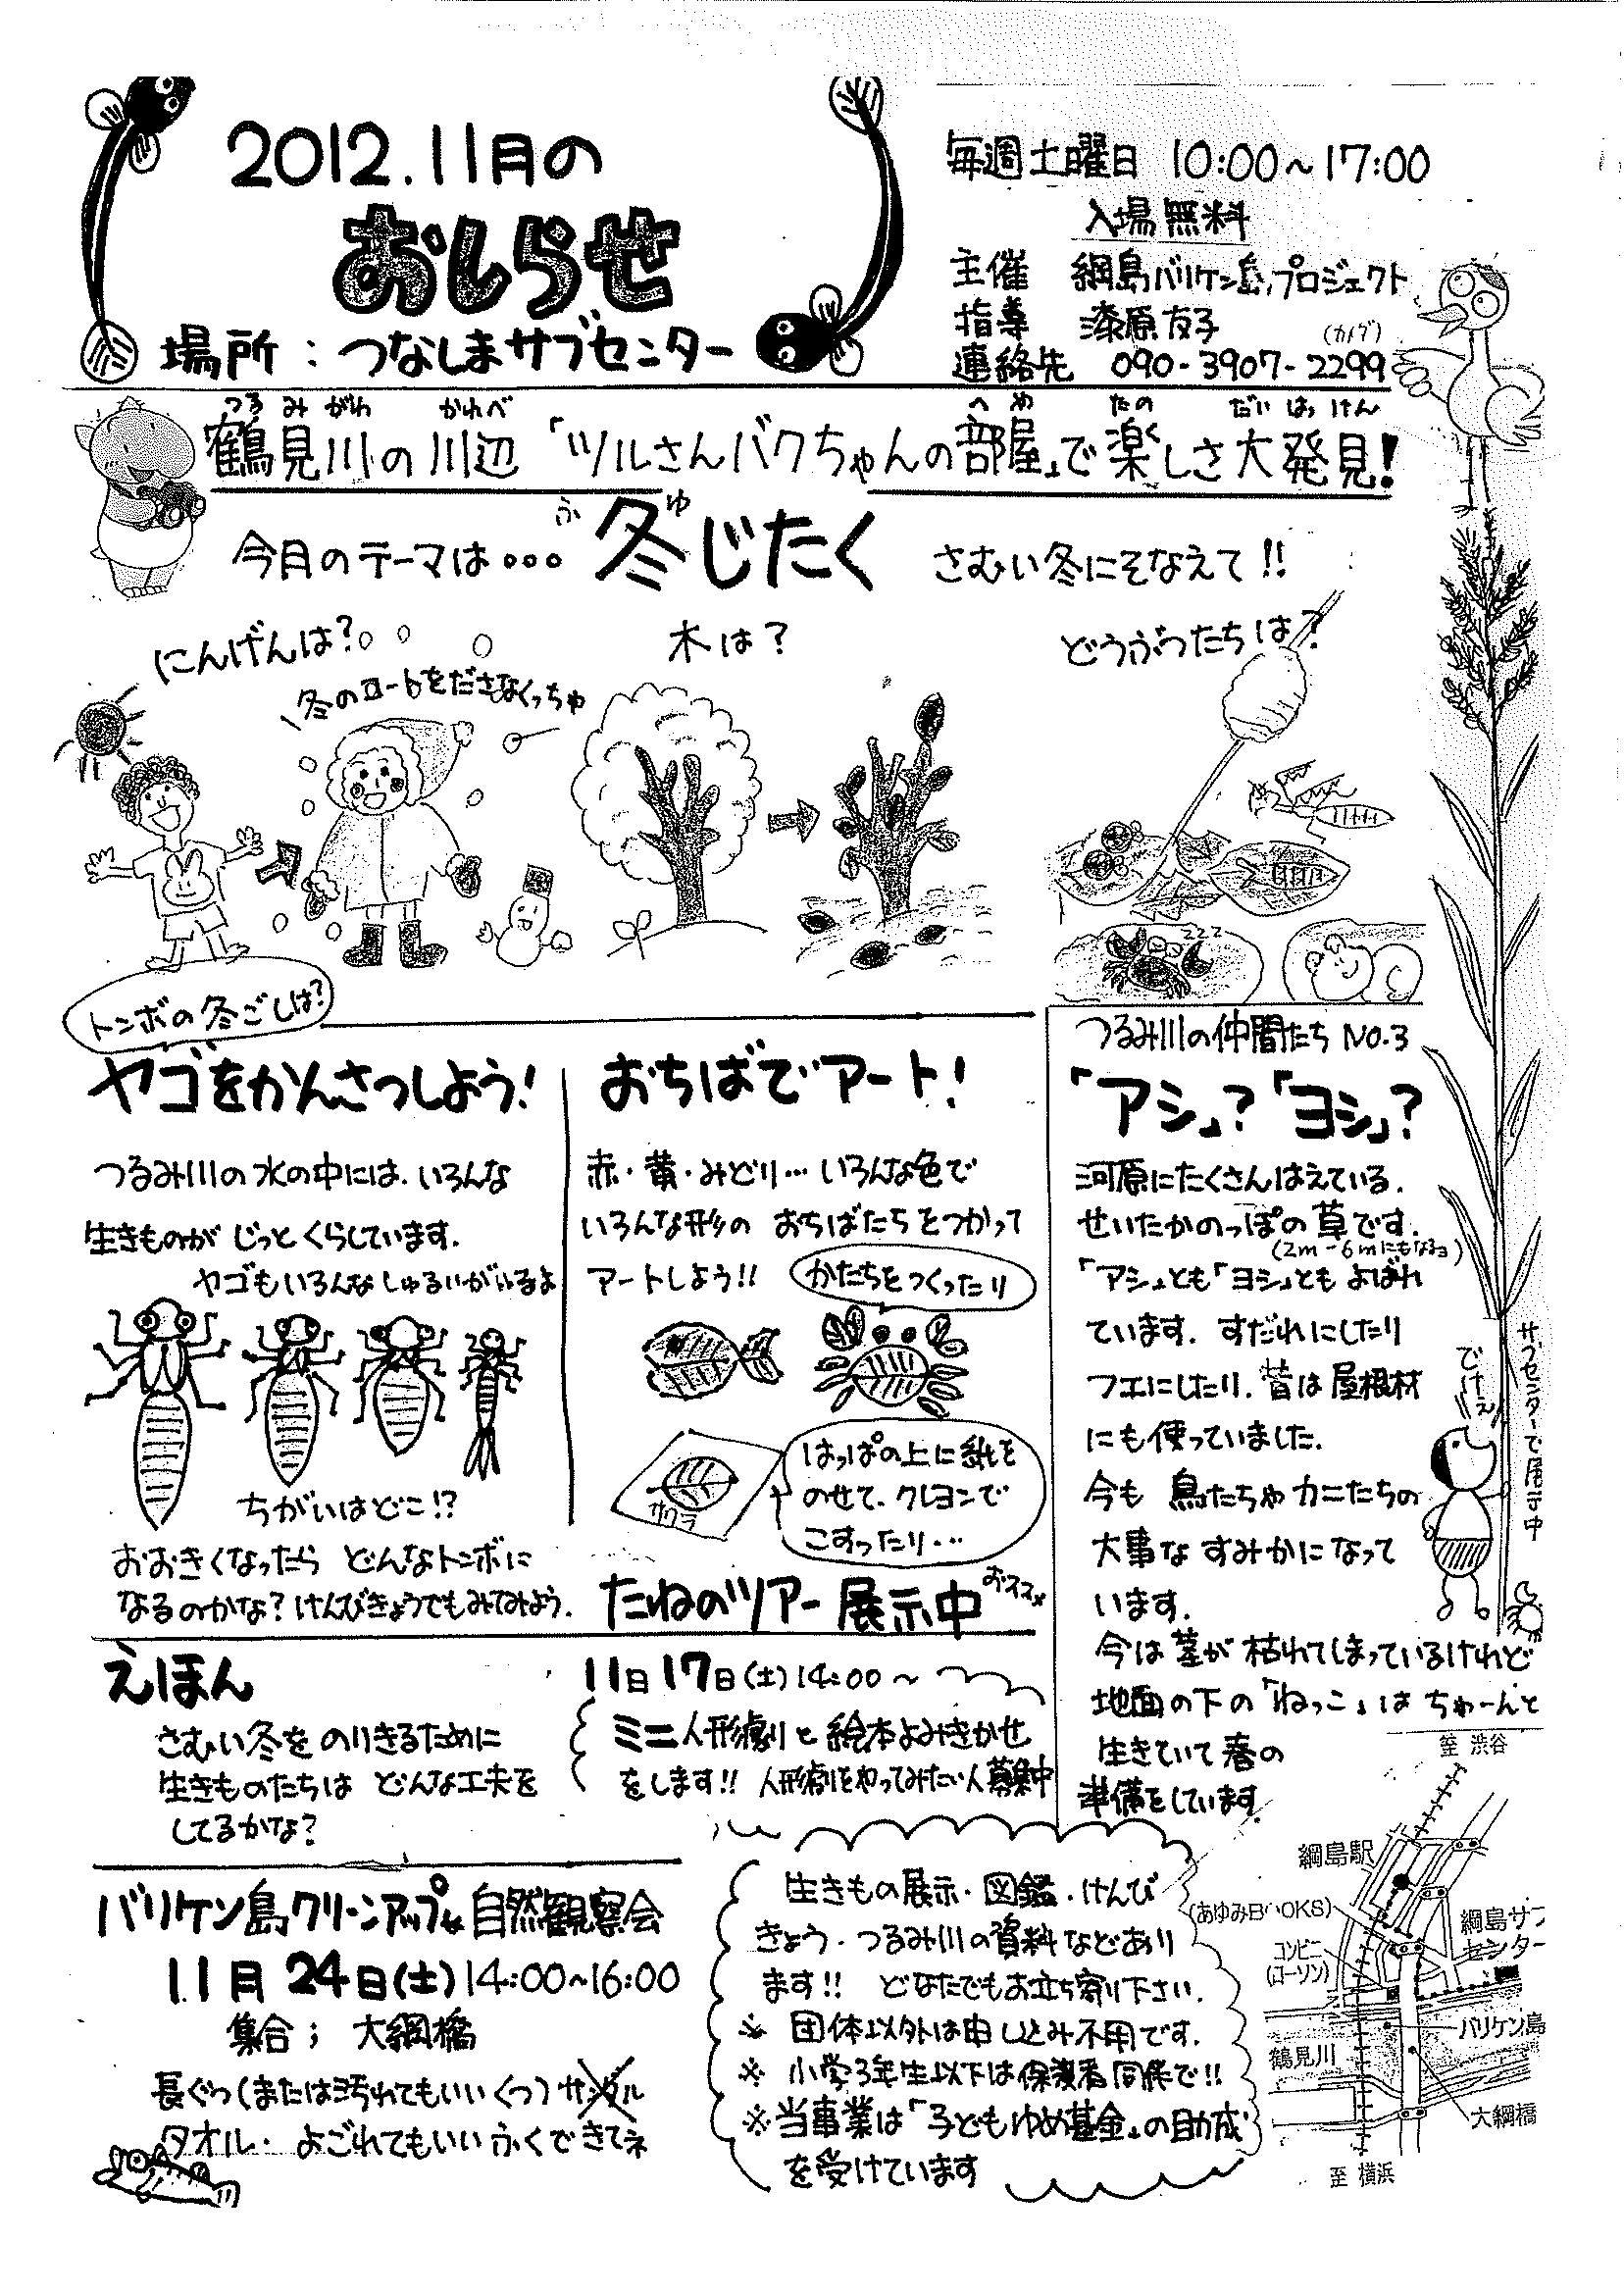 2012.11月の
おしらせ
場所：つなしまサブセンター
毎週土曜日 10:00～17:00
入場無料
主催 綱島バリケン島プロジェクト
指導 漆原友子
(カノグ)
連絡先 090-3907-2299
つる み がわ かわべ へ や たの だい はっ けん
鶴見川の川辺「ツルさんバクちゃんの部屋」で楽しさ大発見！
ふ ゆ
今月のテーマは・・・冬じたく さむい冬にそなえて!!
にんげんは？
冬のコートをださなくっちゃ
木は？
どうぶつたちは？
zzz
トンボの冬ごしは？
ヤゴをかんさつしよう！
つるみ川の水の中には、いろんな
生きものが じっと くらしています.
ヤゴもいろんなしゅるいがいるよ
ちがいはどこ!?
おおきくなったら どんなトンボに
なるのかな？けんびきょうでもみてみよう.
おちばでアート！
赤・黄・みどり…いろんな色で
いろんな形の おちばたちをつかって
アートしよう!!
かたちをつくったり
はっぱの上に紙を
のせて、クレヨンで
こすったり・・・
サクラ
たねのツアー 展示中
おススメ
つるみ川の仲間たち NO.3
「アシ」？「ヨシ」？
河原にたくさんはえている.
せいたかのっぽの草です.
(2m-6mにもなるョ)
「アシ」とも「ヨシ」とも よばれ
ています. すだれにしたり
フエにしたり、昔は屋根材
にも使っていました.
今も 鳥たちやカニたちの
大事な すみかになって
います.
今は茎が枯れてしまっているけれど
地面の下の「ねっこ」は ちゃーんと
生きていて春の
準備をしています.
でけぇ
サブセンターで展示中
えほん
さむい冬を のりきるために
生きものたちは どんな工夫を
してるかな？
11日 17日(土)14:00～
ミニ人形劇と絵本よみきかせ
をします!! 人形劇をやってみたい人募集中
バリケン島クリーンアップ&自然観察会
11月 24日(土)14:00～16:00
集合； 大綱橋
長ぐつ(または汚れてもいいくつ)サンダル
タオル. よごれてもいいふくできてネ
生きもの展示・図鑑・けんび
きょう・つるみ川の資料などあり
ます!! どなたでもお立ち寄り下さい.
※ 団体以外は申し込み不用です.
※ 小学3年生以下は保護者同伴で!!
※当事業は「子どもゆめ基金」の助成
を受けています
至 渋谷
綱島駅
(あゆみBOOKS)
綱島サブ
センター
コンビニ
(ローソン)
バリケン島
鶴見川
大綱橋
至 横浜